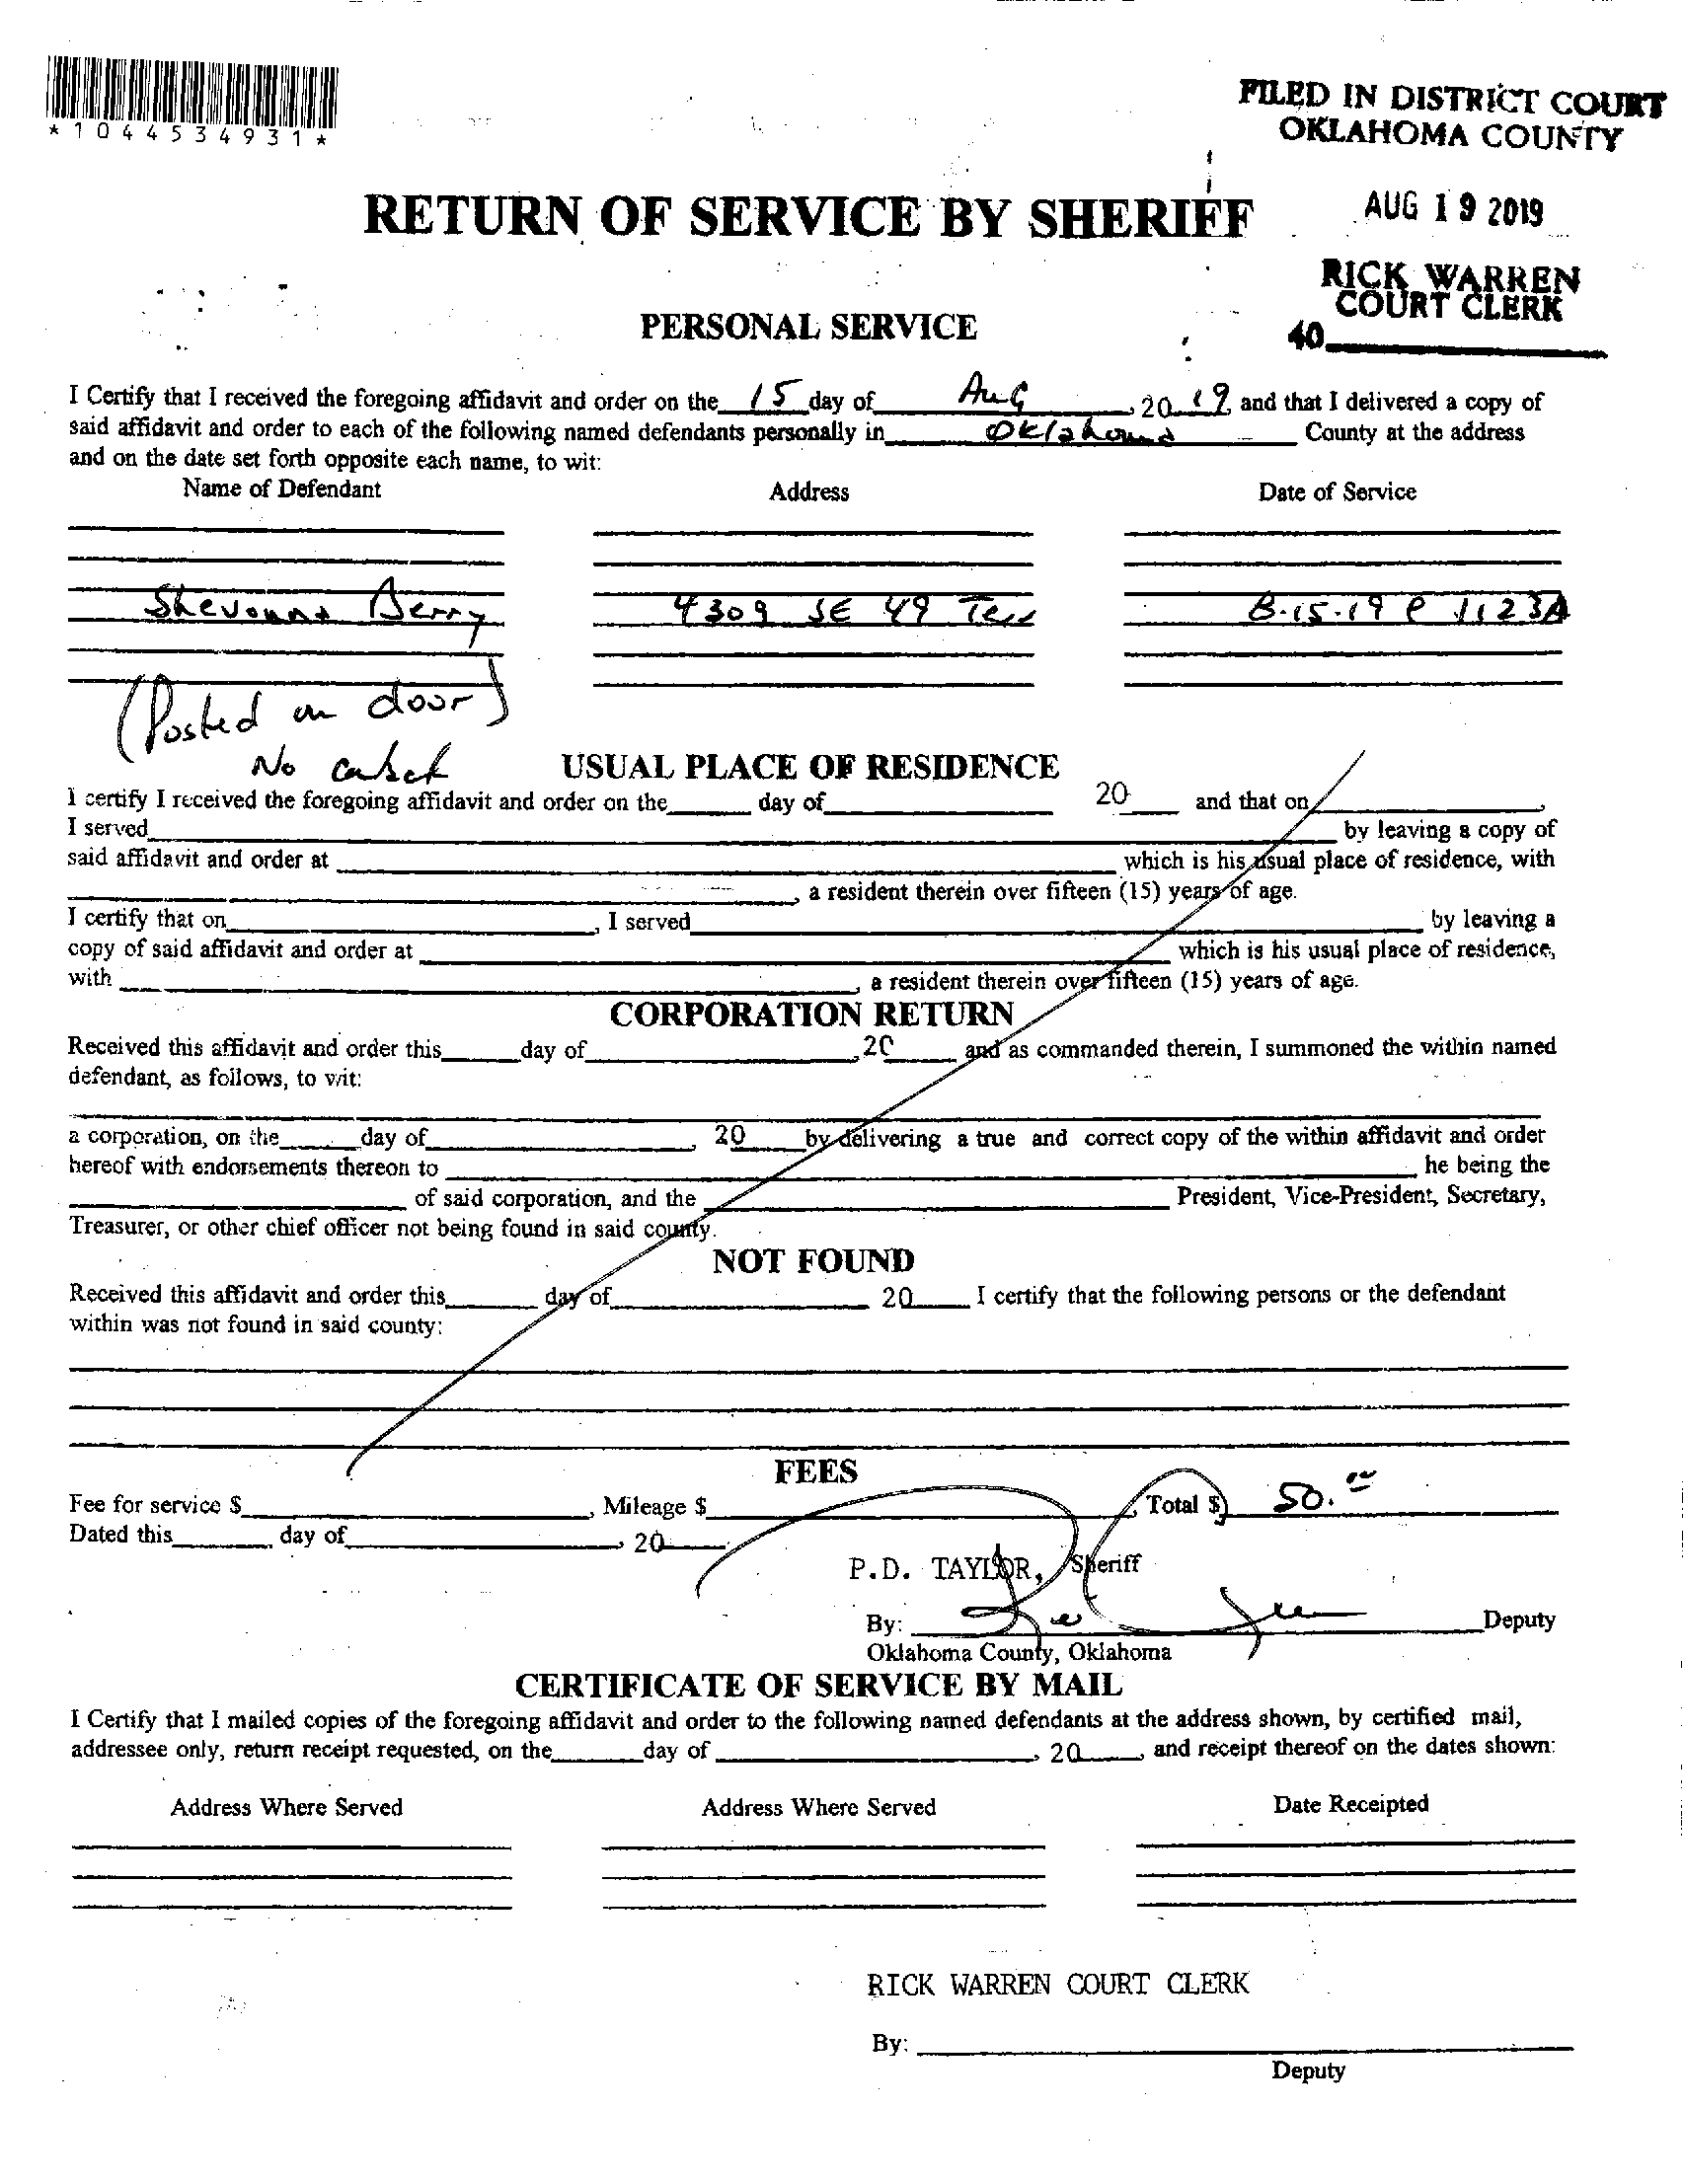 *1044534931*
FILED IN DISTRICT COURT
OKLAHOMA COUNTY
RETURN OF SERVICE BY SHERIFF
AUG 19 2019
RICK WARREN
COURT CLERK
40
PERSONAL SERVICE
I Certify that I received the foregoing affidavit and order on the 15 day of AuG, 20 19 and that I delivered a copy of
said affidavit and order to each of the following named defendants personally in Oklahoma County at the address
and on the date set forth opposite each name, to wit:
Name of Defendant Address Date of Service
Berry 4309 SE 49 8-15-19 1123A
(Posted on door)
No
USUAL PLACE OF RESIDENCE
I certify I received the foregoing affidavit and order on the day of 20 and that on
I served by leaving a copy of
said affidavit and order at which is his usual place of residence, with
, a resident therein over fifteen (15) years of age.
I certify that on , I served by leaving a
copy of said affidavit and order at which is his usual place of residence,
with , a resident therein over fifteen (15) years of age.
CORPORATION RETURN
Received this affidavit and order this day of , 20 and as commanded therein, I summoned the within named
defendant, as follows, to wit:
a corporation, on the day of , 20 by delivering a true and correct copy of the within affidavit and order
hereof with endorsements thereon to he being the
of said corporation, and the President, Vice-President, Secretary,
Treasurer, or other chief officer not being found in said county.
NOT FOUND
Received this affidavit and order this day of 20 I certify that the following persons or the defendant
within was not found in said county:
FEES
Fee for service $ , Mileage $ , Total $ 50.00
Dated this day of , 20
P.D. TAYLOR, Sheriff
By: Deputy
Oklahoma County, Oklahoma
CERTIFICATE OF SERVICE BY MAIL
I Certify that I mailed copies of the foregoing affidavit and order to the following named defendants at the address shown, by certified mail,
addressee only, return receipt requested, on the day of , 20 , and receipt thereof on the dates shown:
Address Where Served Address Where Served Date Receipted
RICK WARREN COURT CLERK
By:
Deputy